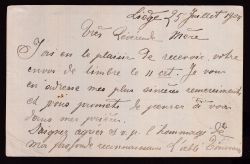 Liège, 25 juillet 1901
Très Révérende Mère
J'ai eu le plaisir de recevoir votre
envoi de timbre le 11 ct. Je vous
en adresse mes plus sincères remerciements
et vous promets de penser à vous
dans mes prières.
Daignez agréer T.R.M. l'hommage de
ma profonde reconnaissance l'abbé